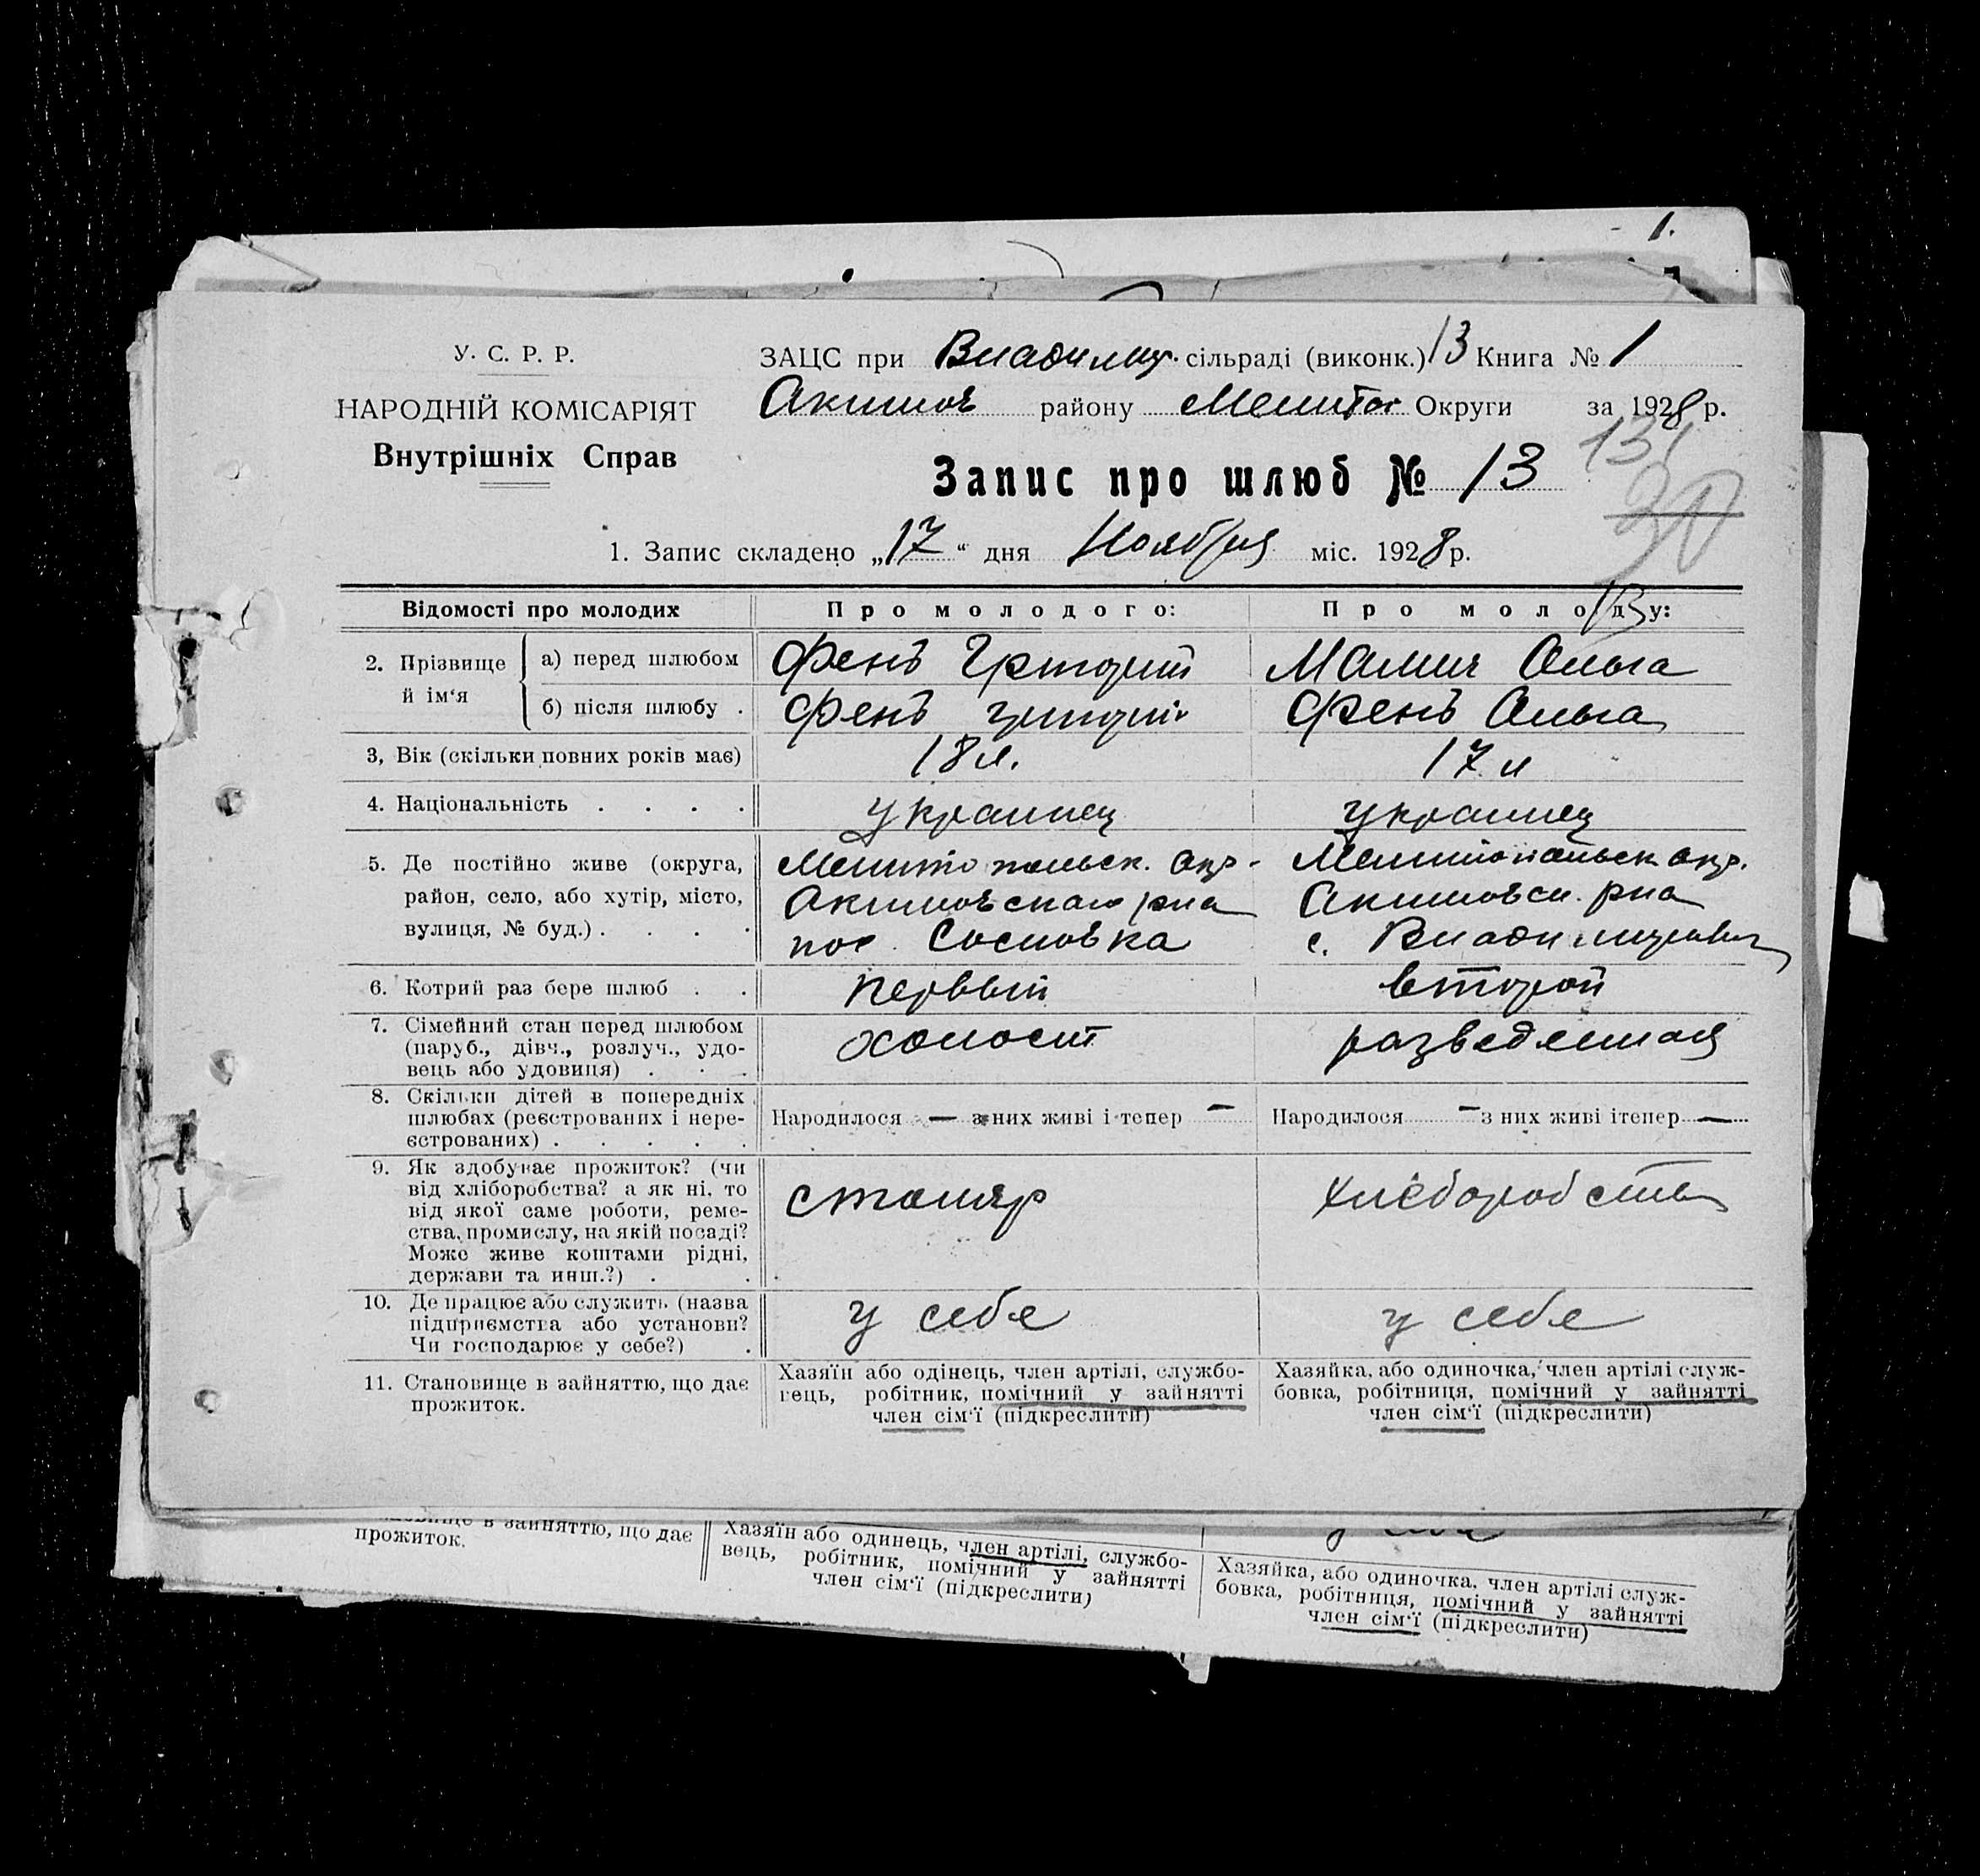 1.
У. С. Р. Р.
НАРОДНІЙ КОМІСАРІЯТ
Внутрішніх Справ
ЗАЦС при Владимир. сільраді (виконк.) 13 Книга № 1
Акимов району Мелитоп Округи за 1928 р.
131
30
Запис про шлюб № 13
1. Запис складено „17“ дня Ноября міс. 1928 р.
13
Відомості про молодих Про молодого: Про молоду:
2. Прізвище й ім‘я а) перед шлюбом Фень Григорий Малич Ольга
б) після шлюбу . Фень Григорий Фень Ольга
3, Вік (скільки повних років має) 18 л. 17 л
4. Національність . . . . украинец украинец
5. Де постійно живе (округа, Мелитопольск. окр. Мелитопольск окр.
район, село, або хутір, місто, Акимовскаго рна Акимовск. рна
вулиця, № буд.) . . . . пос. Сосновка с. Владимировка
6. Котрий раз бере шлюб . . первый второй
7. Сімейний стан перед шлюбом холост разведенная
(паруб., дівч., розлуч., удо-
вець або удовиця) . . .
8. Скільки дітей в попередніх
шлюбах (реєстрованих і нере- Народилося — з них живі і тепер — Народилося — з них живі ітепер —
єстрованих) . . . . .
9. Як здобуває прожиток? (чи
від хліборобства? а як ні, то столяр хлеборобство
від якої саме роботи, реме-
ства, промислу, на якій посаді?
Може живе коштами рідні,
держави та инш.?) . .
10. Де працює або служить (назва у себе у себе
підприємства або установи?
Чи господарює у себе?) .
11. Становище в зайняттю, що дає
прожиток.
Хазяїн або одінець, член артілі, службо-
вець, робітник, помічний у зайнятті
член сім‘ї (підкреслити)
Хазяйка, або одиночка, член артілі служ-
бовка, робітниця, помічний у зайнятті
член сім‘ї (підкреслити)
в зайняттю, що дає
прожиток.
Хазяїн або одинець, член артілі, службо-
вець, робітник, помічний у зайнятті
член сім‘ї (підкреслити)
Хазяйка, або одиночка, член артілі служ-
бовка, робітниця, помічний у зайнятті
член сім‘ї (підкреслити)